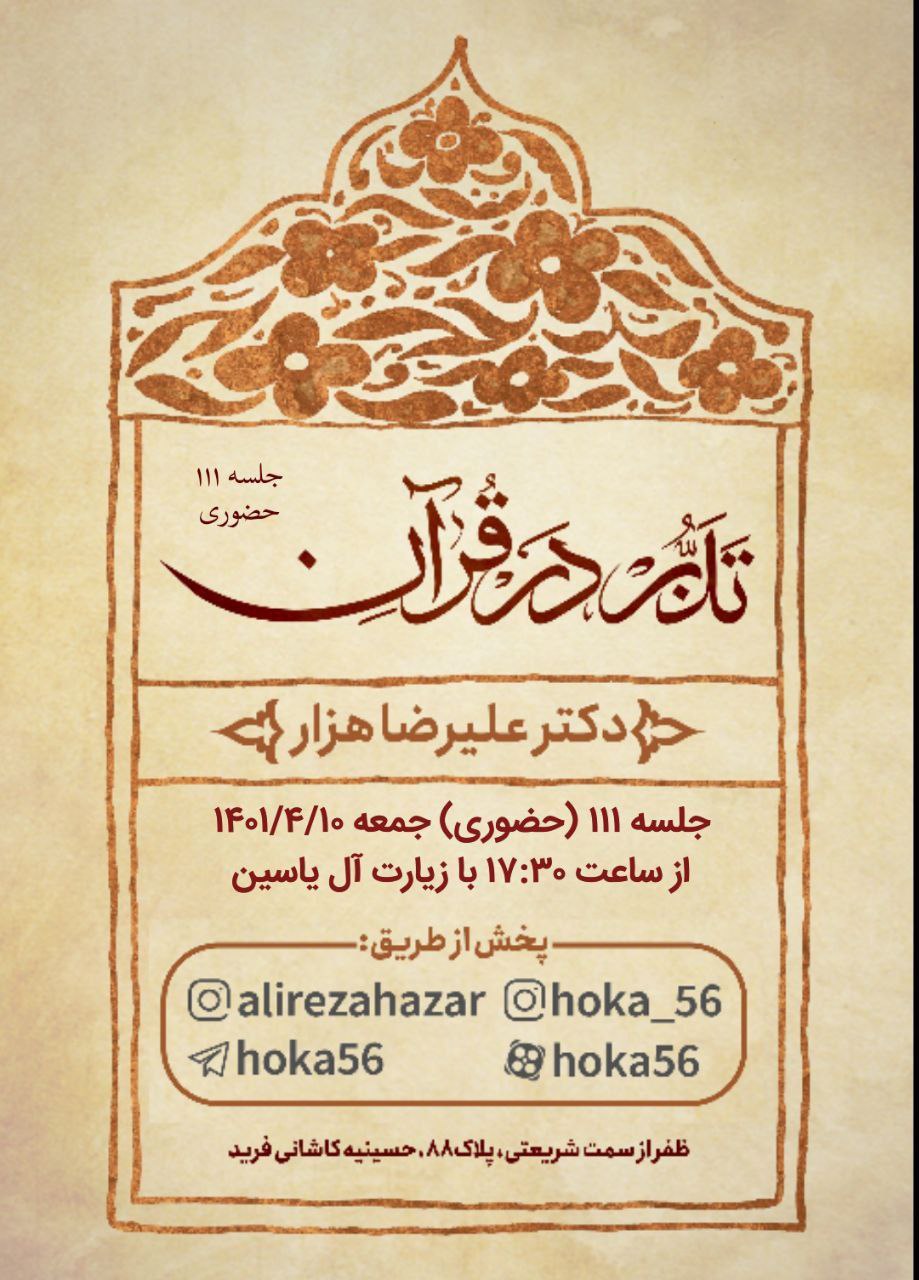 جلسه ۱۱۱
حضوری
تَدَبُّر دَر قُرآنِ
دکتر علیرضا هزار
جلسه ۱۱۱ (حضوری) جمعه ۱۴۰۱/۴/۱۰
از ساعت ۱۷:۳۰ با زیارت آل یاسین
پخش از طریق:
alirezahazar hoka_56
hoka56 hoka56
ظفر از سمت شریعتی، پلاک ۸۸، حسینیه کاشانی فرید